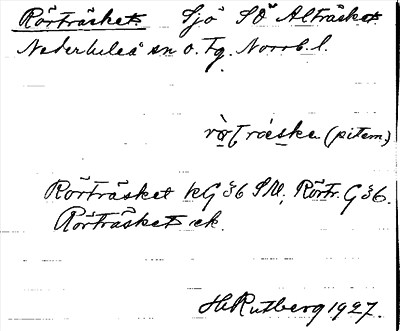 Rörträsket Sjö SÖ Alträsket
Nederluleå sn o. tg. Norrb. l.
(pitem.)
Rörträsket kG 36 SV, Rörtr. G 36.
Rörträsket ek.
H Rutberg 1927.